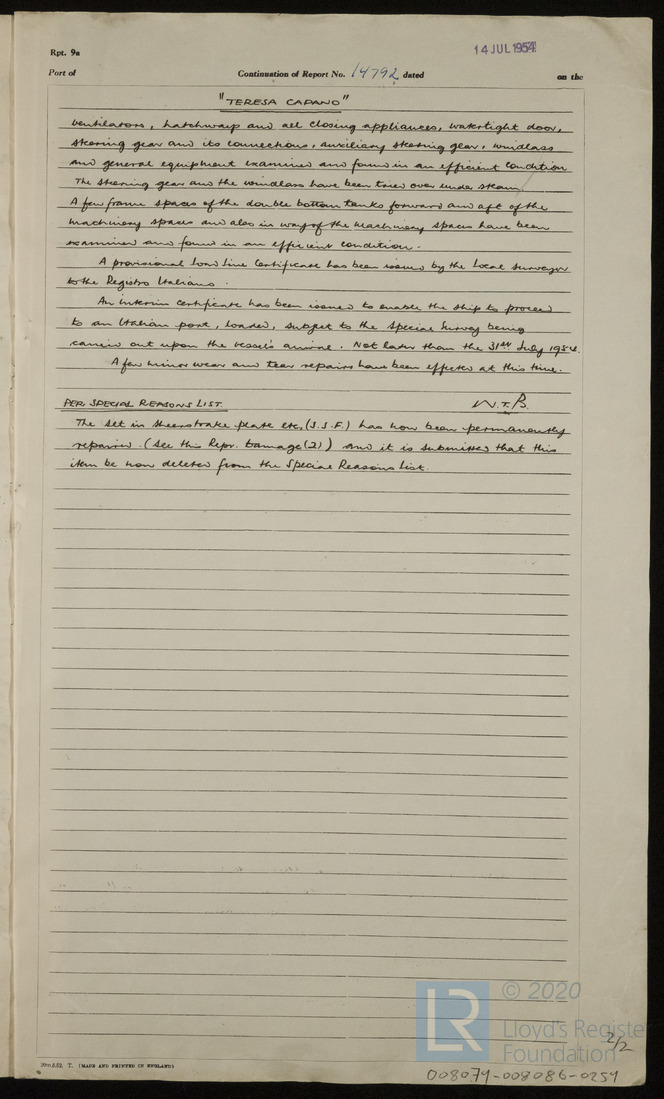 Rpt. 9a
14 JUL 1954
Port of
Continuation of Report No. 14792 dated
on the
"TERESA CAPANO"
ventilators, hatchways and all closing appliances, watertight door,
steering gear and its connections, auxiliary steering gear, windlass
and general equipment examined and found in an efficient condition
The steering gear and the windlass have been tried over under steam
A few frame spaces of the double bottom tanks forward and aft of the
machinery spaces and also in way of the machinery spaces have been
examined and found in an efficient condition.
A provisional Load Line Certificate has been issued by the Local Surveyor
to the Registro Italiano.
An interim certificate has been issued to enable the ship to proceed
to an Italian port, loaded, subject to the Special Survey being
carried out upon the vessel's arrival. Not later than the 31st July 1954.
A few minor wear and tear repairs have been effected at this time.
PER SPECIAL REASONS LIST.
W.T.B.
The set in sheerstrake plate etc, (S.S.F.) has now been permanently
repaired. (See this Repr. Damage (2)) and it is submitted that this
item be now deleted from the Special Reasons List.
© 2020
LR
Lloyd's Register
Foundation
2/2
T. (MADE AND PRINTED IN ENGLAND)
008079-008086-0254